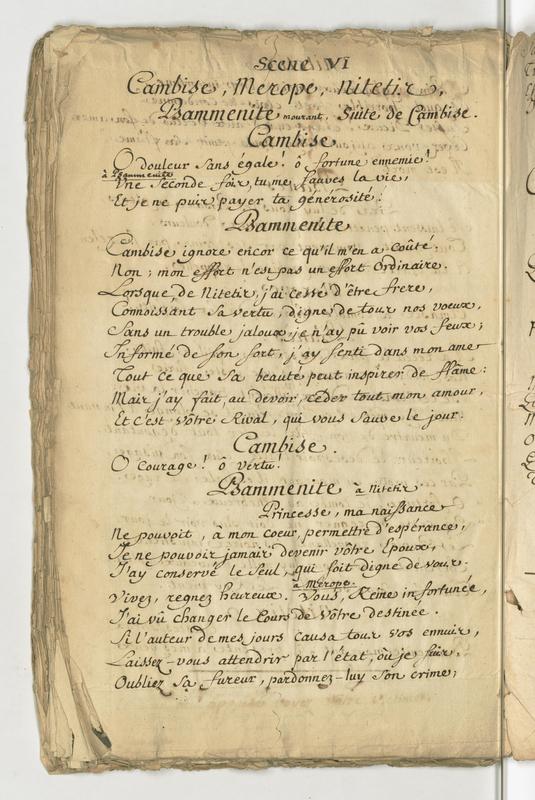 Scene VI
Cambise, Merope, Nitetis,
Psammenite mourant, Suite de Cambise.
Cambise
O douleur sans égale! ô fortune ennemie!
à Psammenite
Une Seconde fois, tu me sauves la vie,
Et je ne puis payer ta générosité!
Psammenite
Cambise ignore encor ce qu'il m'en a coûté.
Non; mon effort n'est pas un effort Ordinaire.
Lorsque, de Nitetis, j'ai cessé d'être frere,
Connoissant Sa vertu, digne de tous nos voeux,
Sans un trouble jaloux, je n'ay pû voir vos feux;
Informé de son sort, j'ay senti dans mon ame
Tout ce que Sa beauté peut inspirer de flâme:
Mais j'ay fait, au devoir, céder tout mon amour,
Et c'est vôtre Rival, qui vous Sauve le jour.
Cambise.
O courage! ô vertu!
Psammenite à Nitetis
Princesse, ma naissance
Ne pouvoit, à mon coeur, permettre d'espérance,
Je ne pouvois jamais devenir vôtre Epoux,
J'ay conservé le Seul, qui soit digne de vous.
à Merope.
Vivez, regnez heureux. Vous, Reine infortunée,
J'ai vû changer le Cours de Vôtre destinée.
Si l'auteur de mes jours causa tous vos ennuis,
Laissez-vous attendrir par l'état, où je suis,
Oubliez Sa fureur, pardonnez-luy Son crime;